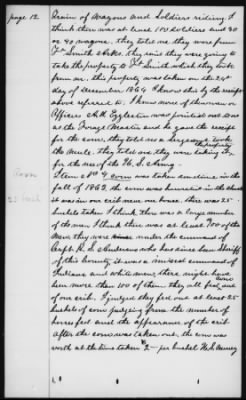 page 12
Train of Wagons and Soldiers riding I
think there was at least 100 soldiers and 30
or 40 wagons. they told me they were from
Ft Smith Arks. They said they were going to
take the property to Ft Smith which they took
from me. this property was taken on the 24th
day of December 1864 I know this by the receipt
above referred to. I know none of the men or
Officers A. H. Eggleston was pointed out
as the Forage Master and he gave the receipt
for the corn, they told me a took
the mule. They told me they were taking the property
for the use of the U. S. Army.
Item No 4 corn was taken sometime in the
fall of 1863. the corn was in the
it was in our crib near our house. there was 25
bushels taken I think. there was a large number
of the men I think there was at least 100 of them
They were under the command of
Capt. R. S. Anderson who has since been Sheriff
of this County it was a mixed command of
Indians and white men. there might have
been more than 100 of them. they all fed out
of our crib. I judged they fed out at least 25
bushels of corn judging from the number of
horses fed and the appearance of the crib
after the corn was taken out. the corn was
worth at the time taken $2 per bushel U. S. money
Corn
25 bush